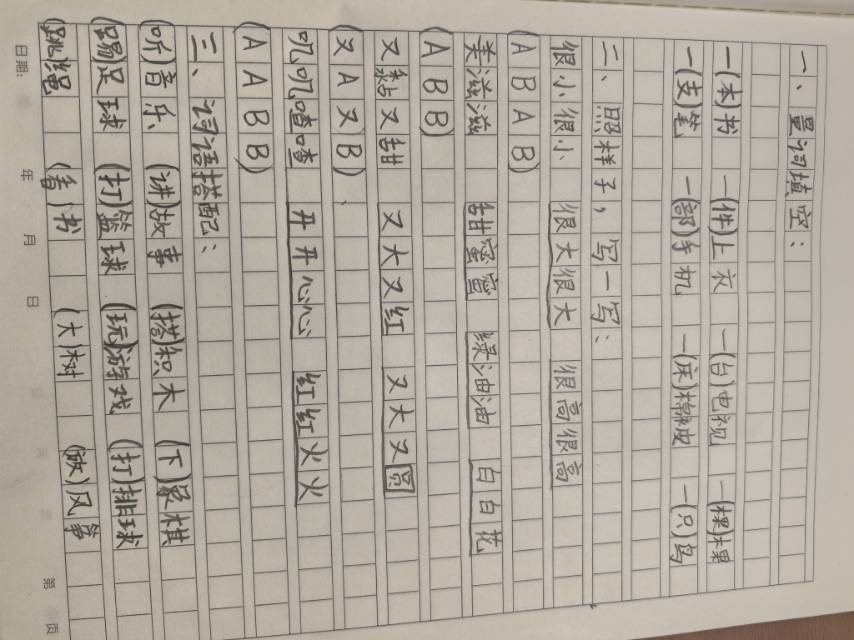 一、量词填空：
一(本)书 一(件)上衣 一(台)电视 一(棵)
一(支)笔 一(部)手机 一(床)棉被 一(只)鸟
二、照样子，写一写：
很小很小 很大很大 很高很高
(ABAB)
美滋滋 甜蜜蜜 绿油油 白白花
(ABB)
又黏又甜 又大又红 又大又圆
(又A又B)、
叽叽喳喳 开开心心 红红火火
(AABB)
三、词语搭配：
(听)音乐、(讲)故事 (搭)积木 (下)象棋
(踢)足球 (打)篮球 (玩)游戏 (打)排球
(跳)绳 (看)书 (大)树 (放)风筝
日期： 年 月 日 第 页